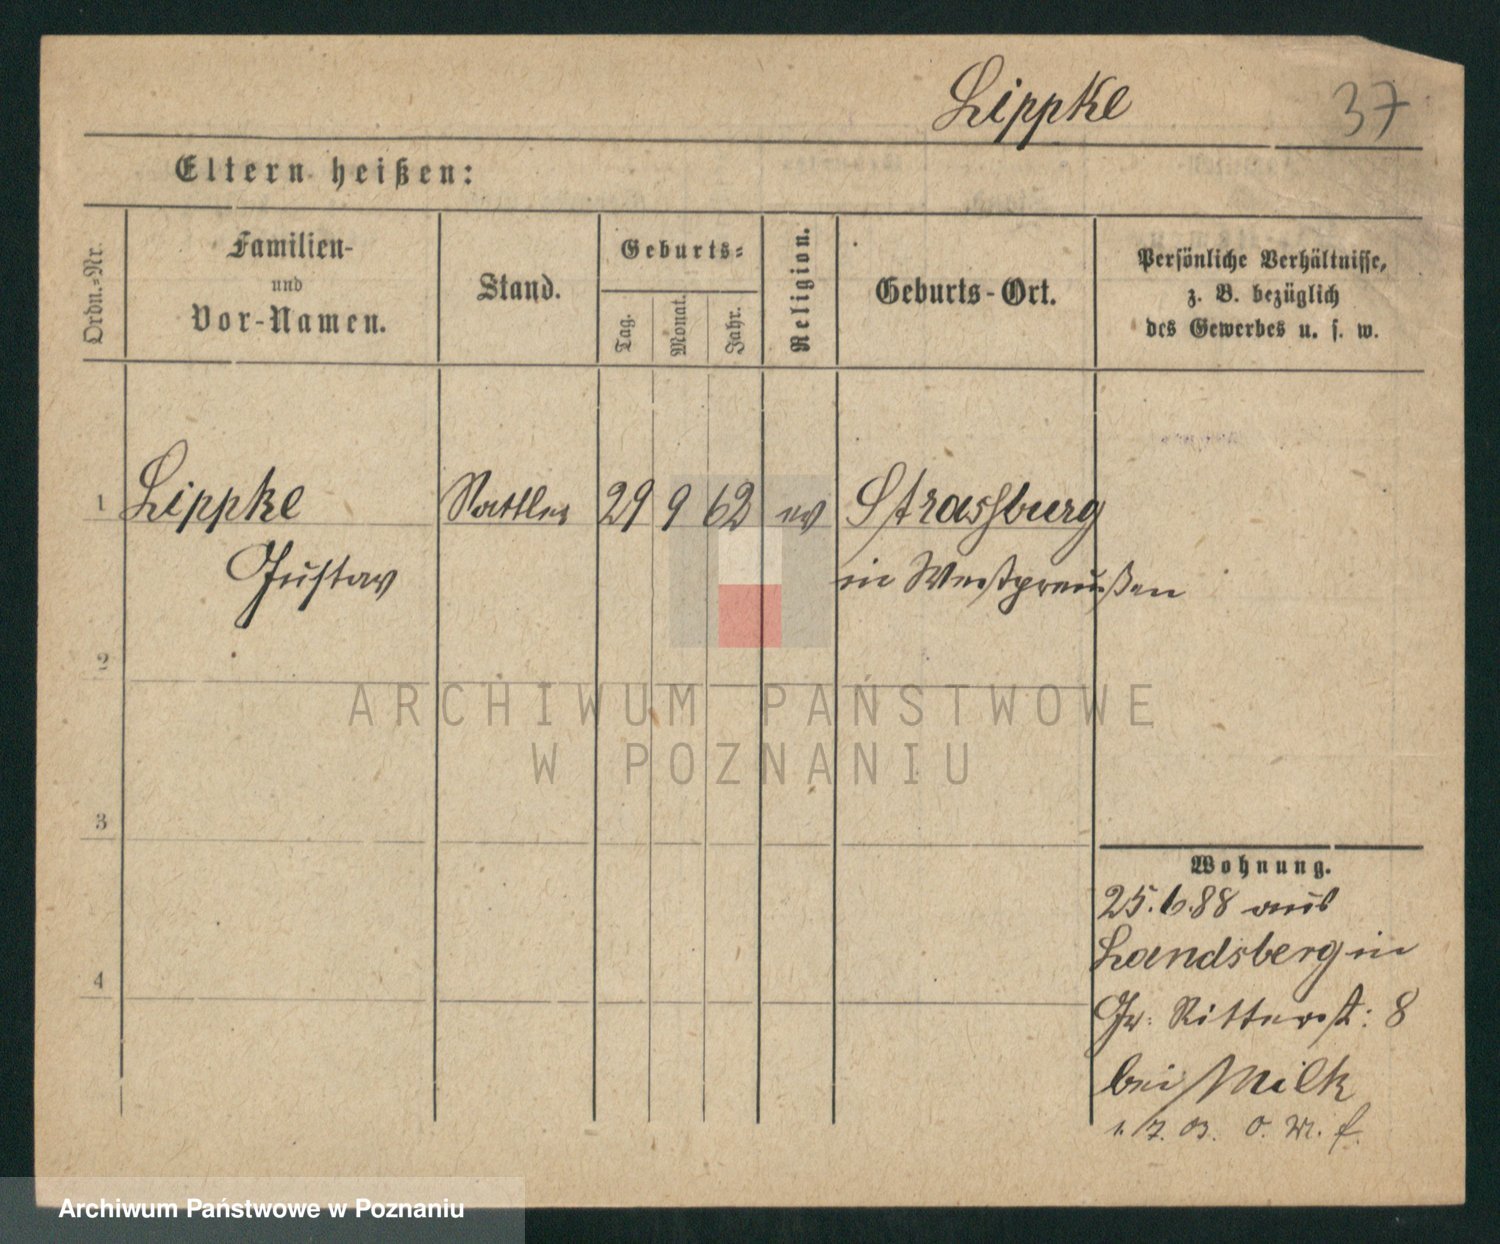 Lippke
37
Eltern heißen:
Ordn.-Nr.
Familien-
und
Vor-Namen.
Stand.
Geburts-
Tag.
Monat.
Jahr.
Religion.
Geburts-Ort.
Persönliche Verhältnisse,
z. B. bezüglich
des Gewerbes u. s. w.
1 Lippke Sattler 29 9 62 ev Strasburg
Gustav in Westpreußen
2
3
4
ARCHIWUM PAŃSTWOWE
W POZNANIU
Wohnung.
25.6.88 aus
Landsberg in
Gr. Ritterst: 8
bei Milk
1. 7. 03. O. M. f.
Archiwum Państwowe w Poznaniu